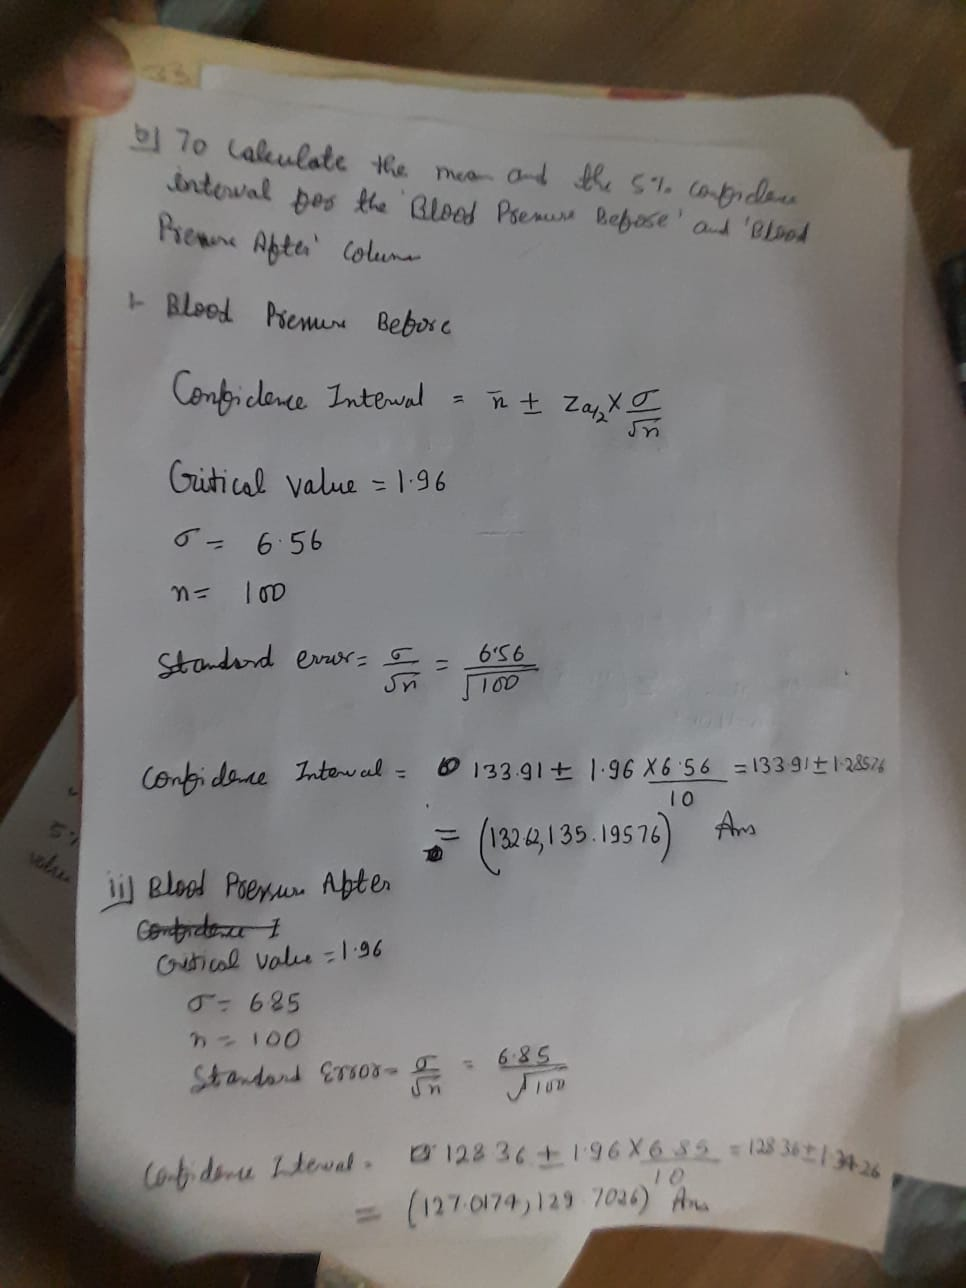 b) To Calculate the mean and the 5% confidence
interval for the 'Blood Pressure Before' and 'Blood
Pressure After' column
1- Blood Pressure Before
Confidence Interval = x̄ ± Zα/2 × σ/√n
Critical value = 1.96
σ = 6.56
n = 100
Standard error = σ/√n = 6.56/√100
Confidence Interval = 133.91 ± 1.96 × 6.56/10 = 133.91 ± 1.28576
= (132.62, 135.19576) Ans
ii) Blood Pressure After
Confidence I
Critical value = 1.96
σ = 6.85
n = 100
Standard Error = σ/√n = 6.85/√100
Confidence Interval = 128.36 ± 1.96 × 6.85/10 = 128.36 ± 1.3426
= (127.0174, 129.7026) Ans
5%
value